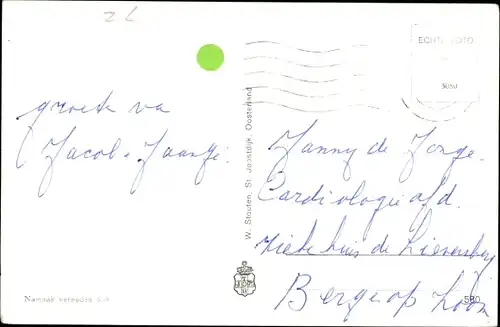 z L
groeten va
Jacob + Jaantje.
W. Stouten, St. Joostdijk, Oosterland
ECHTE FOTO
3030
Janny de Jonge.
Cardiologie afd.
Ziekehuis de Lievensberg
Bergen op Zoom
Namaak verboden
580